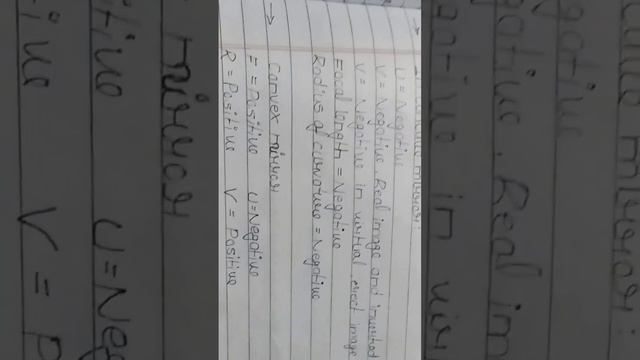 → Concave mirror:
U = Negative
V = Negative, Real image and inverted
V = Negative in virtual erect image
Focal length = Negative
Radius of curvature = Negative
→ Convex mirror
F = Positive U = Negative
R = Positive V = Positive